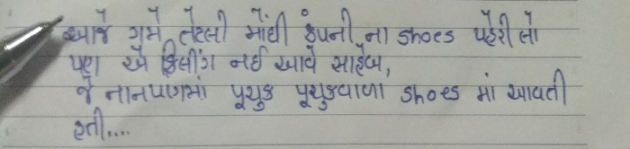 આજે ગમે તેટલી મોંઘી કંપની ના shoes પહેરી લો
પણ એ ફિલીંગ નઈ આવે સાહેબ,
જે નાનપણમાં પૂચુક પૂચુકવાળા shoes માં આવતી
હતી....